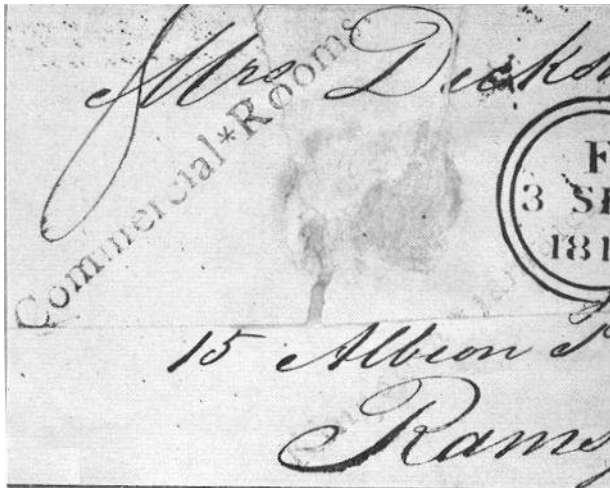 Mrs Dickso
Commercial*Rooms
F
3 SE
181
15 Albion P
Rams